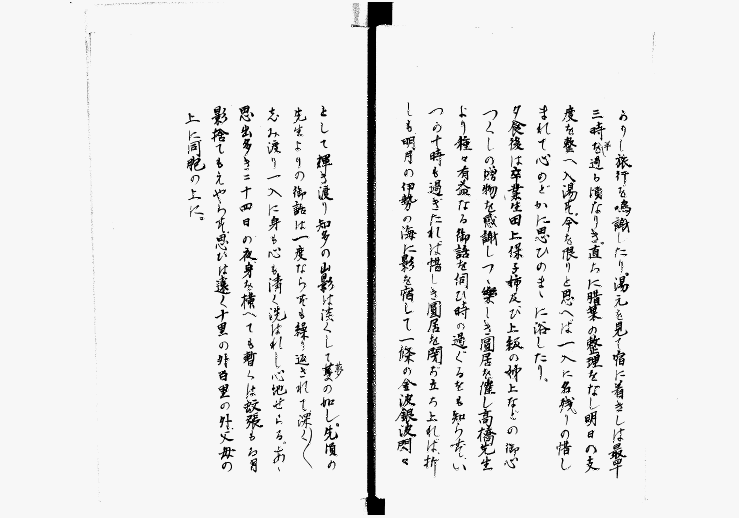 らりし旅行を鳴謝したり。湯元を見て宿に着きしは最早
三時半を過る頃なりき。直らに腊葉の整理をなし明日の支
度を整へ入湯す。今を限りと思へば一入に名残りの惜し
まれて心のどかに思ひのまゝに浴したり。
夕食後は卒業生田上保子姉及び上級の姉上などの御心
つくしの贈物を感謝しつゝ樂しき團居を催し高橋先生
より種々有益なる御話を伺ひ時の過ぐるをも知らず、い
つか十時も過ぎたれば惜しき團居を閉ぢ立ち上れば、折
しも明月の伊勢の海に影を宿して一條の金波銀波閃々
として輝き渡り知多の山影は淡くして夢の如し。先頃の
先生よりの御話は一度ならずも繰り返されて深く〳〵
しみ渡り一入に身も心も清く洗はれし心地せらる。あゝ
思出多き二十四日の夜、身を横へても暫らは故張もお月
影捨てもえやらず思ひは遠く十里の外百里の外、父母の
上に同胞の上に。